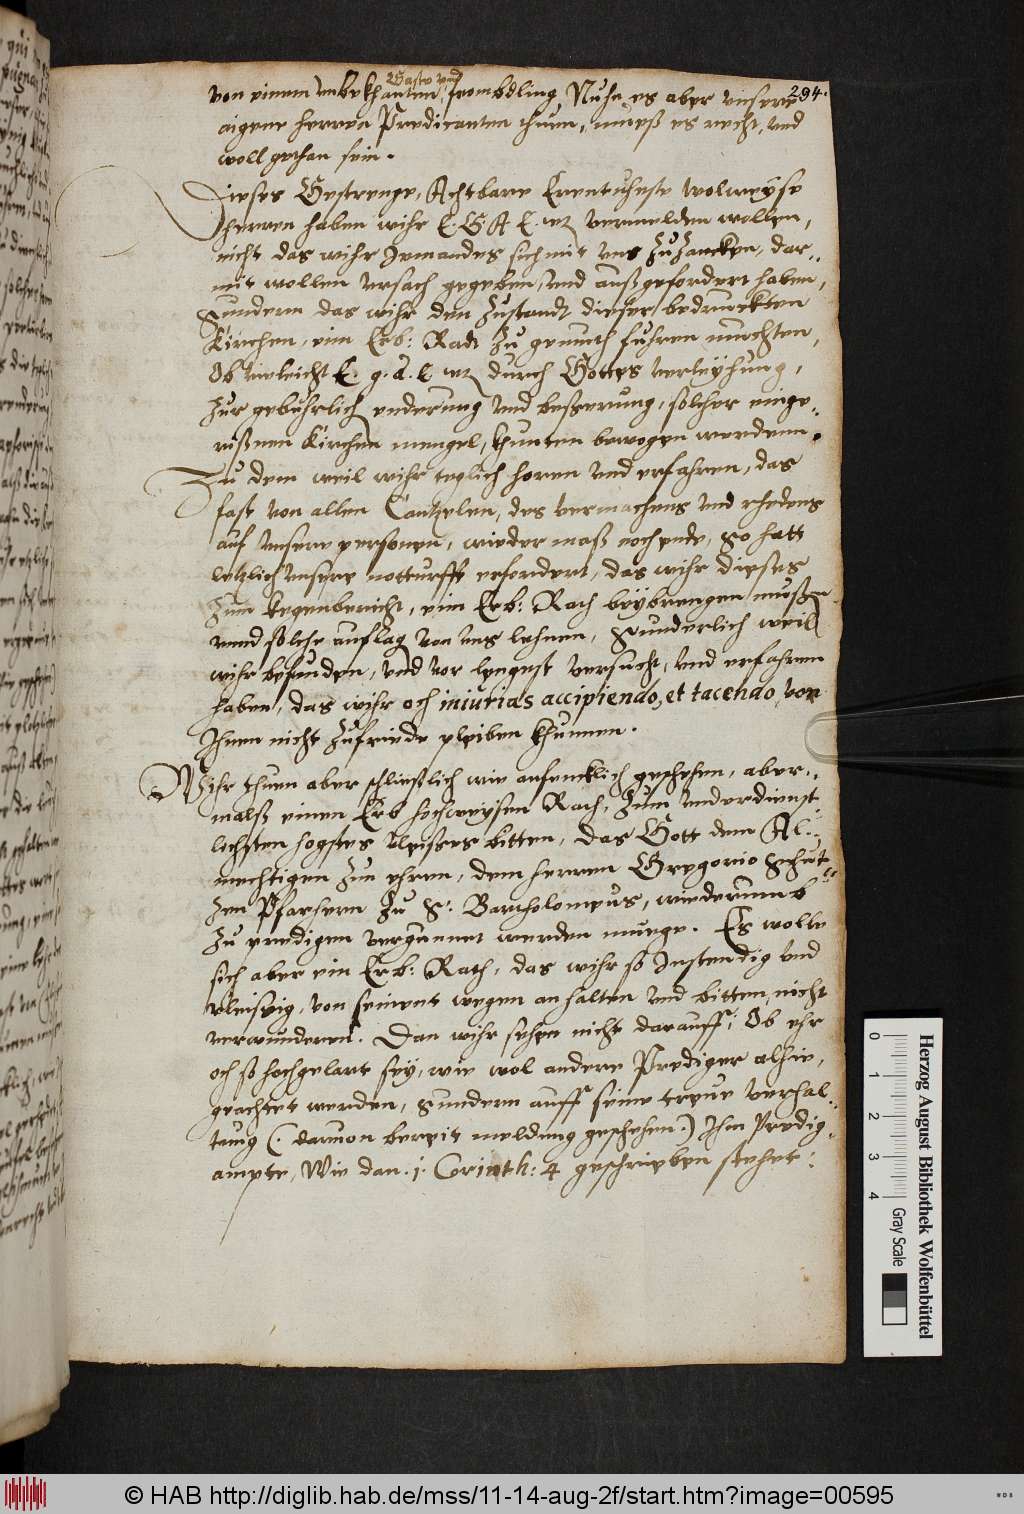 294.
Gaste vnd
von einem vnbekhanten, frombdling, Nuhn es aber vnsere
aigene herren Predicanten thuen, mueß es recht, vnd
woll gethan sein.
Dieses Gestrenge, Achtbare Erentuheste wolweyse
herren haben wihr E. G. A. E. w. vermelden wollen,
nicht das wihr Jemandes sich mit vns zu zancken, dar-
mit wollen vrsach gegeben, vnd außgefordert haben,
Sundern das wihr den zustandt dieser bedruckten
Kirchen, ein Erb: Radt zu gemuth fuhren muchten,
Ob vieleicht E. g. A. E. w. durch Gottes verleyhung,
zur gebuhrlich enderung vnd beßerung, solcher einge-
rißnen Kirchen mengel, khunten bewogen werdenn.
Zu dem weil wihr teglich horen vnd erfahren, das
fast von allen Cantzelen, des vermachens vnd rhedens
auf vnsere personen, wieder maß noch ende, So hatt
letzlich vnsere notturfft erfordert, das wihr dieses
zum kegenbericht, eim Erb: Rath beybrengen mußen
vnnd solche auflag von vns lehnen, Sunderlich weil
wihr befunden, vnd vor lengest versucht, vnd erfahren
haben, das wihr och iniurias accipiendo, et tacendo, vor
Ihnen nicht zufriede pleiben khunnen.
Wihr thuen aber schließlich wie anfencklich geschehen, aber-
malß einen Erb hochweysen Rath, zum vnderdienst-
lichsten hogstes vleißes bitten, das Gott dem Al-
mechtigen zun ehren, dem herren Gregorio Schut-
zen Pfarhern zu S: Bartholomeus, wiederumb
zu predigen vergunnet werden muege. Es wolle
sich aber ein Erb: Rath, das wihr so Instendig vnd
vleissig, von seinent wegen anhalten vnd bitten, nicht
verwunderen. Dan wihr sehen nicht darauff, Ob ehr
och so hochgelart sey, wie wol andere Prediger alhie,
geachtet werden, Sundern auff seine treue verhal-
tung (. dauon bereit meldung geschehen .) Ihm Predig-
ampte, Wie dan .j. Corinth: 4 geschrieben stehet:
Herzog August Bibliothek Wolfenbüttel
0 1 2 3 4 Gray Scale
© HAB http://diglib.hab.de/mss/11-14-aug-2f/start.htm?image=00595